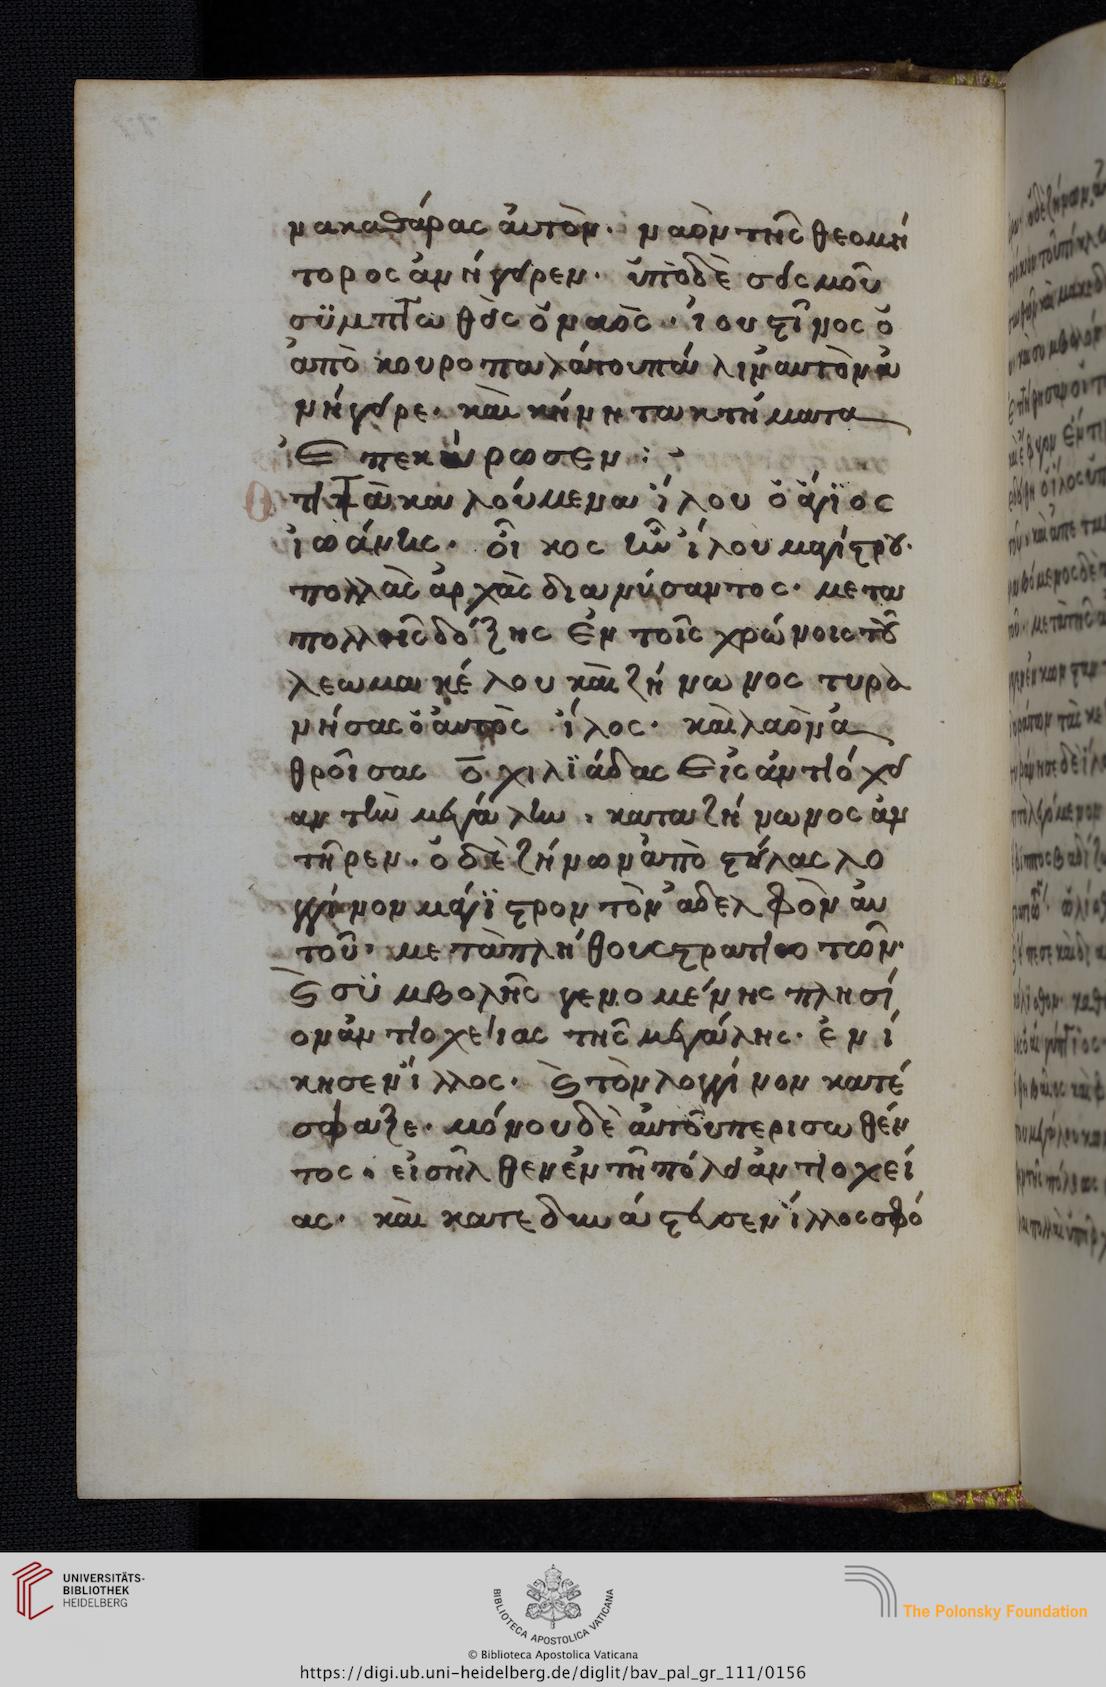 νακαθάρας ἀυτὸν· ναὸν τῆς θεομή
τορος ἀνήγειρεν· ὑπὸ δὲ σεισμοῦ
σϋμπτωθεὶς ὁ ναὸς· ἰουστῖνος ὁ
ἀπὸ κουροπαλάτου πάλιν ἀυτὸν ἀ
νήγειρε· καὶ κήνητα κτήματα
ἐπεκύρωσεν :
Ὅτι τὰ καλούμενα ἴλου ὁ ἅγϊος
ἰωάννης· οἶκος ἦν ἴλου μαγίστρου·
πολλὰς ἀρχὰς διανύσαντος· μετα
πολλῆς δόξης ἐν τοῖς χρώνοις τοῦ
λεωμακέλου καὶ ζήνωνος τυρα
νήσας ὁ ἀυτὸς ἴλος· καὶ λαὸν ἀ
θροῖσας ο̅ χιλϊάδας εἰς ἀντιόχει
αν τὴν μεγάλην· κατα ζήνωνος ἀν
τῆρεν· ὁ δὲ ζήνων ἀπὸ στείλας λο
γγίνον μάγϊστρον τὸν ἀδελφὸν ἀυ
τοῦ· μετὰ πλήθους στρατιοτῶν·
ϗ σϋμβολῆς γενομένης πλησί
ον ἀντιοχείας τῆς μεγάλης· ἐνί
κησεν ἴλλος· ϗ τὸν λογγίνον κατέ
σφαξε· μόνου δὲ ἀυτοῦ περισωθέν
τος· εἰσῆλθεν ἐν τῆ πόλει ἀντιοχεί
ας· καὶ κατεδυνάστευσεν ἴλλος σφό
UNIVERSITÄTS-
BIBLIOTHEK
HEIDELBERG
BIBLIOTECA APOSTOLICA VATICANA
The Polonsky Foundation
© Biblioteca Apostolica Vaticana
https://digi.ub.uni-heidelberg.de/diglit/bav_pal_gr_111/0156